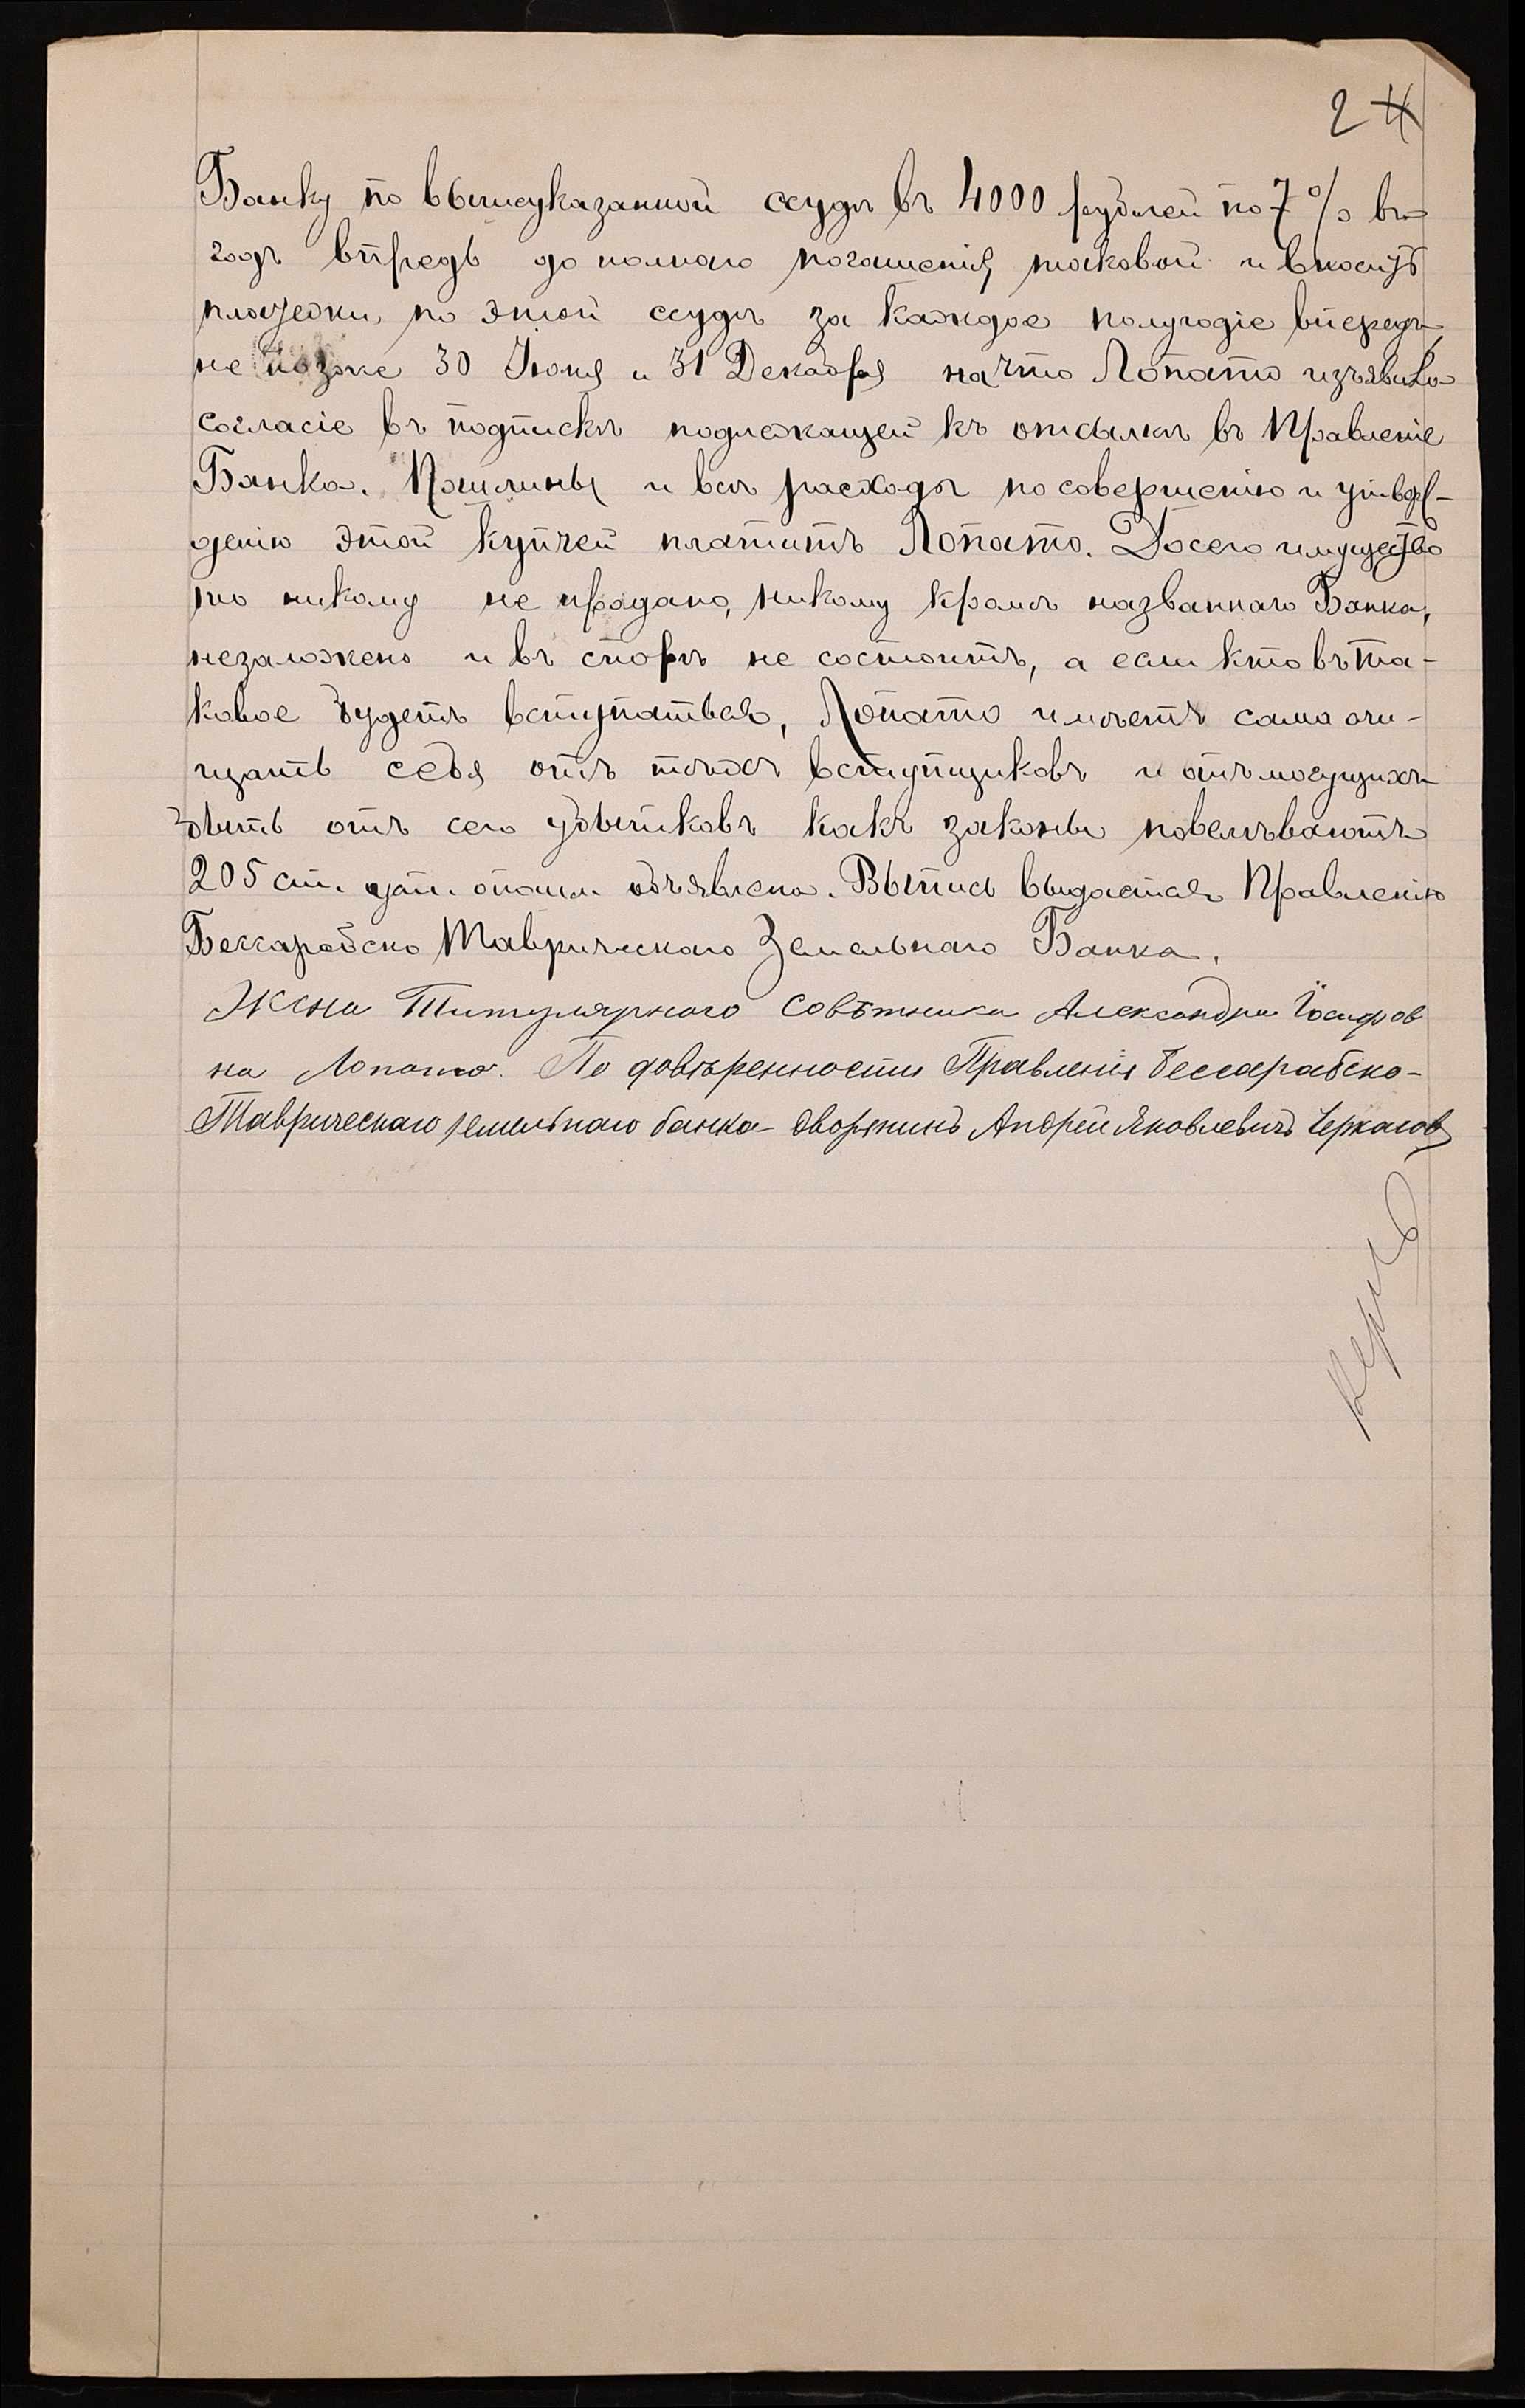 2 4
Банку по вышеуказанной ссудѣ въ 4000 рублей по 7 % въ
годъ впредь до полнаго погашенія таковой и вносить
платежи по этой ссудѣ за каждое полугодіе впередъ
не позже 30 Іюня и 31 Декабря на что Лопато изъявила
согласіе въ подпискѣ подлежащей къ отсылкѣ въ Правленіе
Банка. Пошлины и всѣ расходы по совершенію и утвер-
денію этой купчей платитъ Лопато. До сего имущество
то никому не продано, никому кромѣ названнаго Банка,
незаложено и въ спорѣ не состоитъ, а если кто въ та-
ковое будетъ вступаться, Лопато имѣетъ сама очи-
щать себя отъ тѣхъ вступщиковъ и отъ могущихъ
быть отъ сего убытковъ какъ законы повелѣваютъ
205 ст. объявлена. Выпись выдается Правленію
Бессарабско Таврическаго Земельнаго Банка.
Жена Титулярнаго Совѣтника Александра Іосифов
на Лопато. По довѣренности Правленія Бессарабско-
Таврическаго земельнаго банка - дворянинъ Андрей Яковлевичъ Черкасов